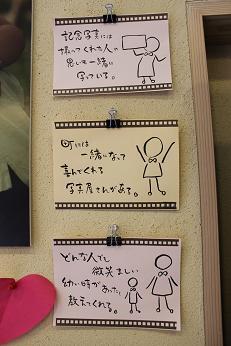 記念写真には
撮ってくれた人の
思いも一緒に
写っている。
町には
一緒になって
喜んでくれる
写真屋さんがある。
どんな人でも
微笑ましい
幼い時があったと
教えてくれる。